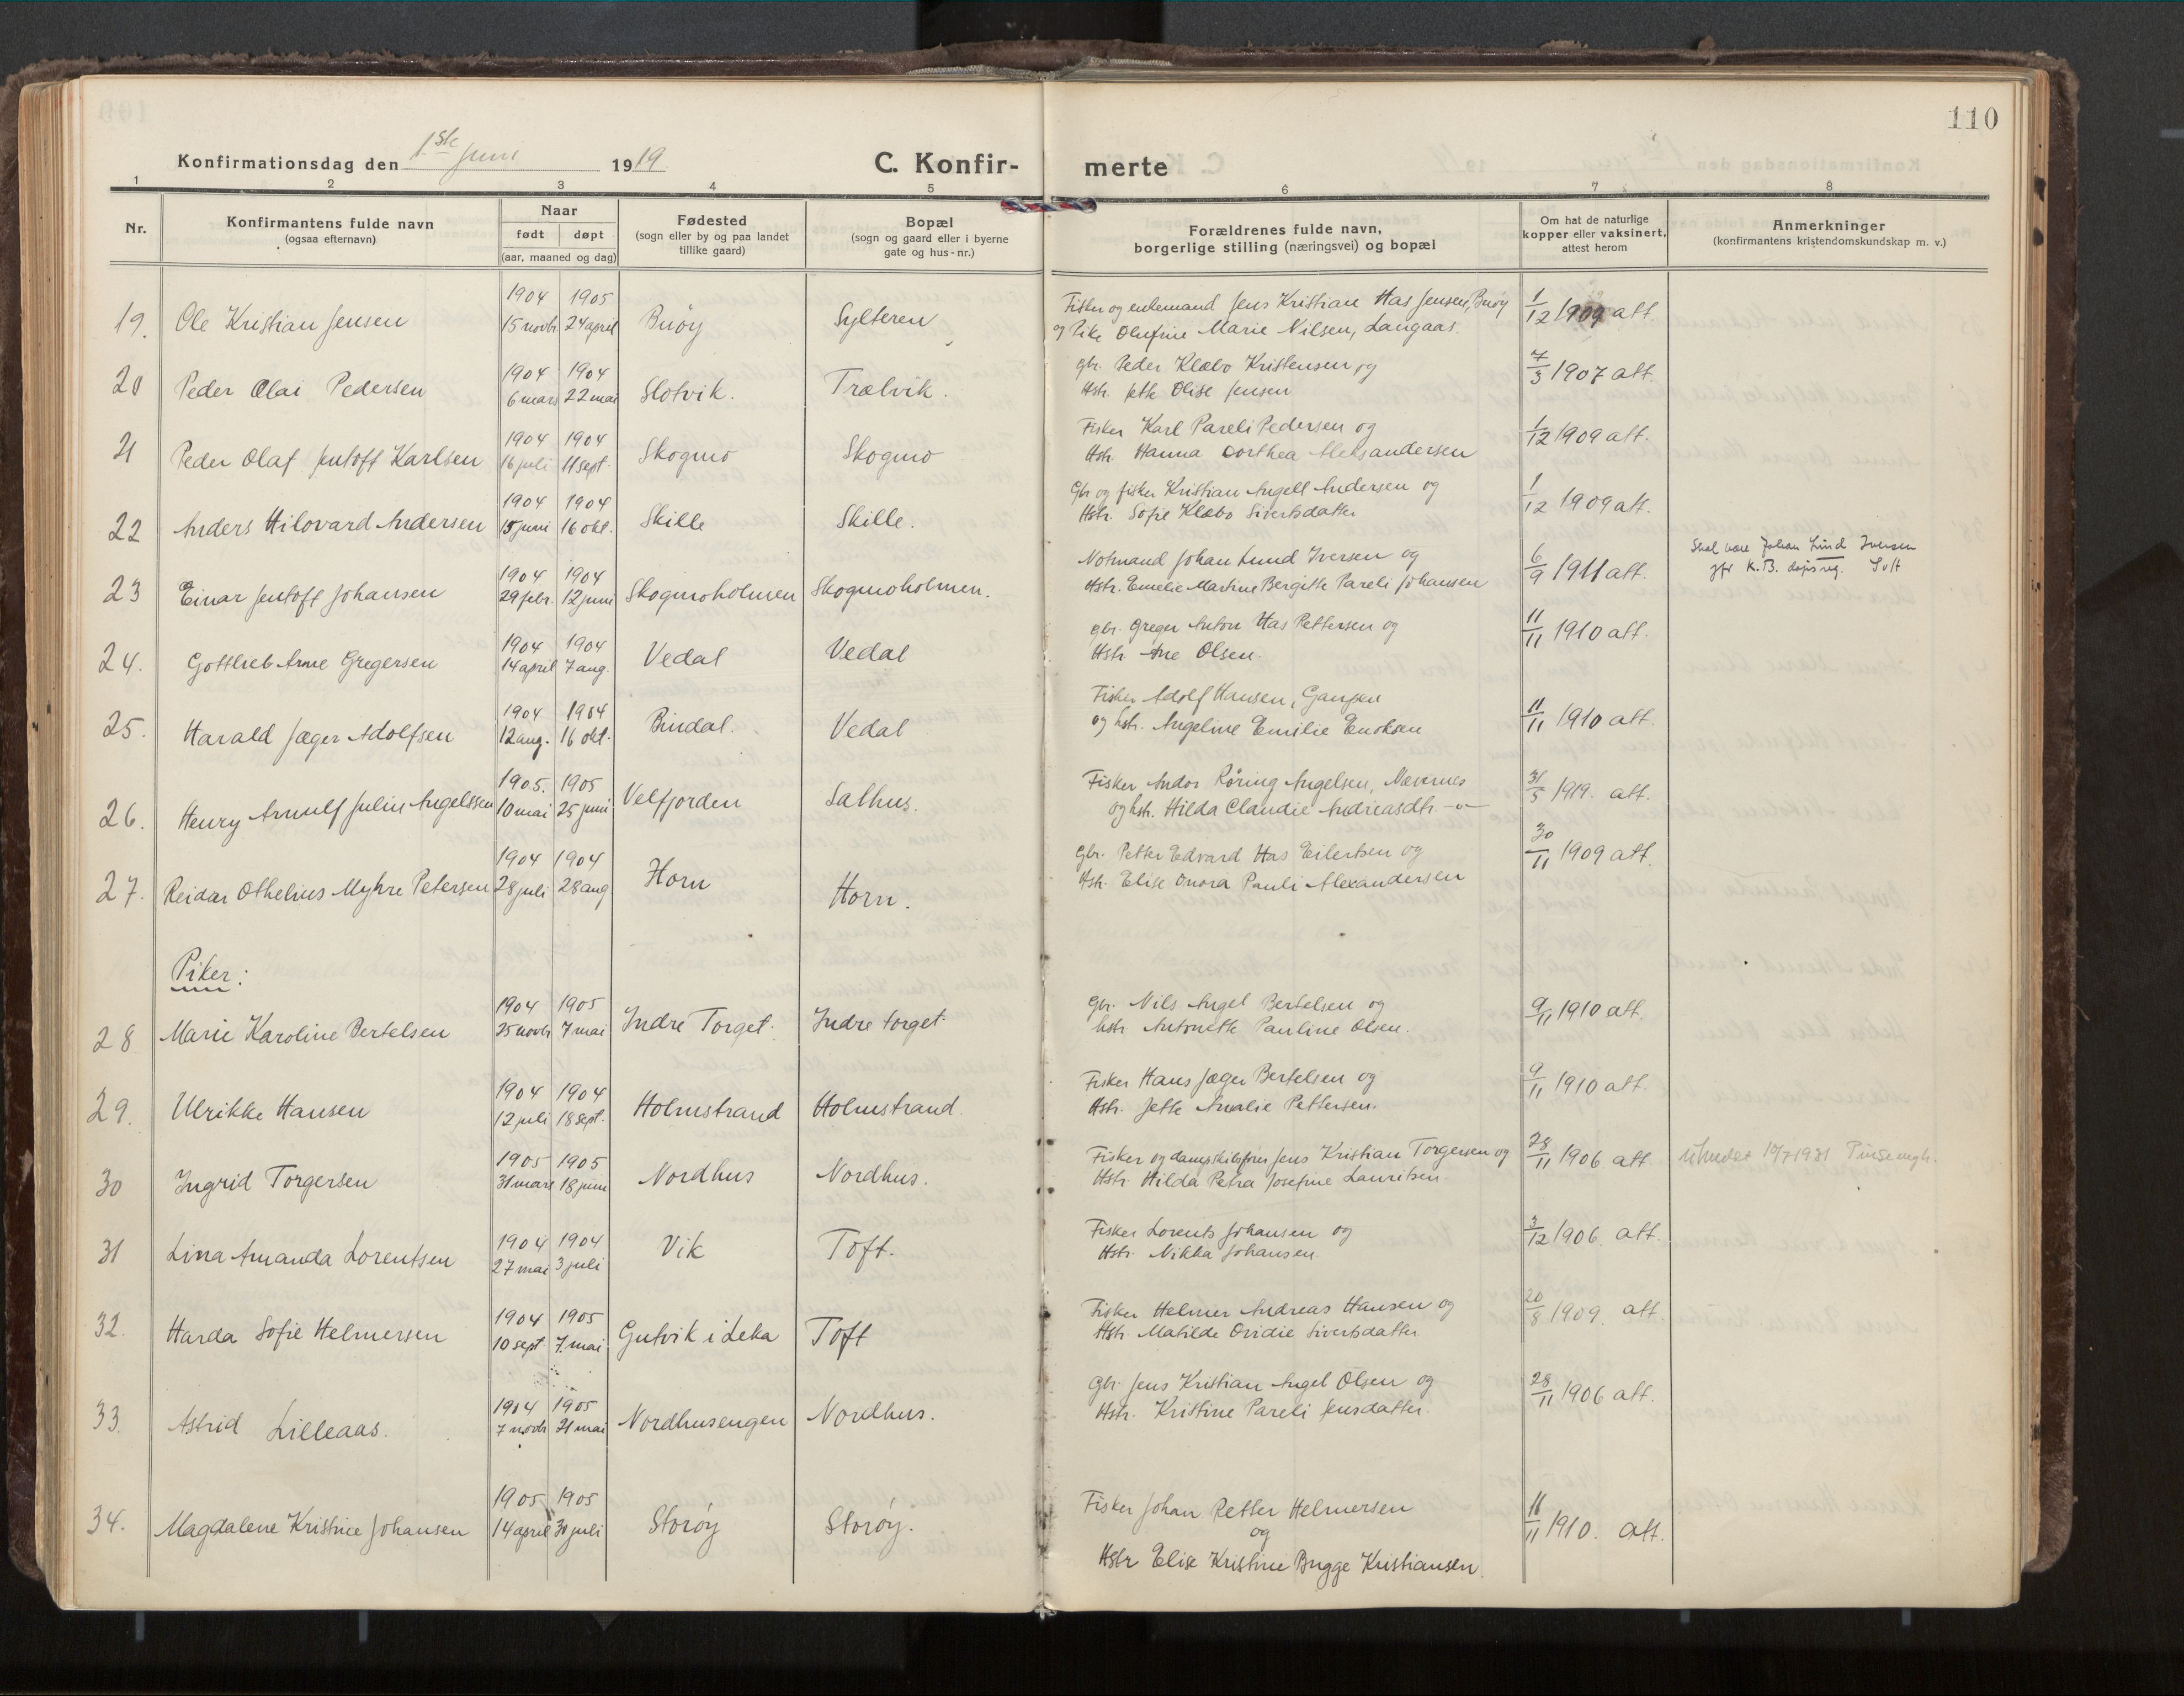 110
Konfirmationsdag den 1ste juni 1919
C. Konfirmerte
1 2 3 4 5 6 7 8
Nr.
Konfirmantens fulde navn
(ogsaa efternavn)
Naar
født døpt
(aar, maaned og dag)
Fødested
(sogn eller by og paa landet
tillike gaard)
Bopæl
(sogn og gaard eller i byerne
gate og hus-nr.)
Forældrenes fulde navn,
borgerlige stilling (næringsvei) og bopæl
Om hat de naturlige
kopper eller vaksinert,
attest herom
Anmerkninger
(konfirmantens kristendomskundskap m. v.)
19. Ole Kristian Jensen 1904 15 novbr 1905 24 april Buøy Sylteren
Fisker og enkemand Jens Kristian Has Jensen, Buøy
og Pike Olufine Marie Nilsen, Langaas. 1/12 1909 att.
20 Peder Olai Pedersen 1904 6 mars 1904 22 mai Slotvik. Trælvik.
gbr. Peder Klæbo Kristensen og
Hstr. Jette Olise Jensen 7/3 1907 att.
21 Peder Olaf Jentoft Karlsen 1904 16 juli 1904 11 sept. Skogmo Skogmo
Fisker Karl Pareli Pedersen og
Hstr. Hanna Dorthea Aleksandersen 1/12 1909 att.
22 Anders Hilovard Andersen 1904 15 juni 1904 16 okt. Skille Skille.
Gbr og fisker Kristian Angell Andersen og
Hstr. Sofie Klæbo Sivertsdatter 1/12 1909 att.
23 Einar Jentoft Johansen 1904 29 febr. 1904 12 juni Skogmoholmen Skogmoholmen.
Notmand Johan Lund Iversen og
Hstr. Emelie Martine Bergitte Pareli Johansen 6/9 1911 att.
Skal være Johan Lind Iversen
jfr K.B. dåpsreg.
24. Gottlieb Arne Gregersen 1904 14 april 1904 7 aug. Vedal Vedal
gbr. Greger Anton Has Pettersen og
Hstr Ane Olsen. 11/11 1910 att.
25. Harald Jæger Adolfsen 1904 12 aug. 1904 16 okt. Bindal. Vedal
Fisker Adolf Hansen,
og hstr. Angeline Emilie Enoksen 11/11 1910 att.
26. Henry Arnulf Julius Angelssen 1905. 10 mai 1905 25 juni Velfjorden Salhus.
Fisker Andor Røring Angelsen, Nævernes
og hstr. Hilda Claudie Andreasdtr. -"- 31/5 1919. att.
27. Reidar Othelius Myhre Petersen 1904 28 juli 1904 28 aug Horn Horn.
Gbr. Petter Edvard Has Eilertsen og
Hstr. Elise Onora Pauli Alexandersen 30/11 1909 att.
Piker:
28 Marie Karoline Bertelsen 1904 25 novbr 1905 7 mai Indre Torget. Indre torget.
Gbr. Nils Angel Bertelsen og
hstr Antonette Pauline Olsen. 9/11 1910 att.
29. Ulrikke Hansen 1904 12 juli 1904 18 sept. Holmstrand Holmstrand.
Fisker Hans Jæger Bertelsen og
Hstr. Jette Amalie Pettersen. 9/11 1910 att.
30 Ingrid Torgersen 1905 31 mars 1905 18 juni Nordhus Nordhus.
Fisker og dampskibsfører Jens Kristian Torgersen og
Hstr. Hilda Petra Josefine Lauritsen. 28/11 1906 att. Utmeldt 10/7 1931 Pinsemgh.
31 Lina Amanda Lorentsen 1904 27 mai 1904 3 juli Vik Toft.
Fisker Lorents Johansen og
Hstr. Nikka Johansen. 3/12 1906. att.
32. Harda Sofie Helmersen 1904 10 sept 1905 7. mai Gutvik i Leka Toft
Fisker Helmer Andreas Hansen og
Hstr Matilde Ovidie Sivertsdatter 20/8 1909. att
33. Astrid Lilleaas. 1904 7 novbr 1905 21 mai Nordhusengen Nordhus.
Gbr. Jens Kristian Angel Olsen og
Hstr. Kristine Pareli Jensdatter. 28/11 1906 att.
34. Magdalene Kristine Johansen 1905 14 april 1905 30 juli Storøy Storøy.
Fisker Johan Petter Helmersen
og
Hstr Elise Kristine Brygge Kristiansen. 11/11 1910. att.